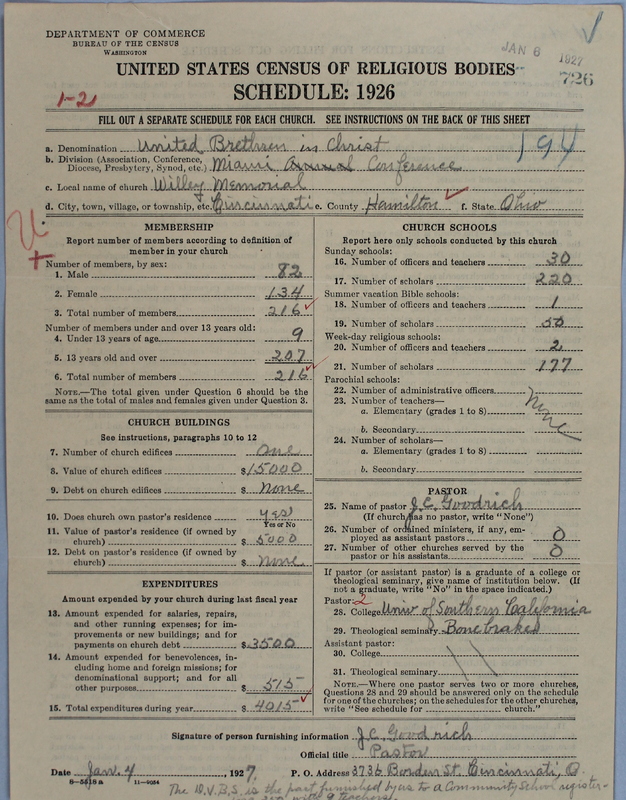 DEPARTMENT OF COMMERCE
BUREAU OF THE CENSUS
WASHINGTON
JAN 6 1927
726
UNITED STATES CENSUS OF RELIGIOUS BODIES
SCHEDULE: 1926
1-2
FILL OUT A SEPARATE SCHEDULE FOR EACH CHURCH. SEE INSTRUCTIONS ON THE BACK OF THIS SHEET
194
a. Denomination United Brethren in Christ
b. Division (Association, Conference, Diocese, Presbytery, Synod, etc.) Miami Annual Conference
c. Local name of church Willey Memorial
d. City, town, village, or township, etc. Cincinnati e. County Hamilton f. State Ohio
MEMBERSHIP
Report number of members according to definition of
member in your church
Number of members, by sex:
1. Male 82
2. Female 134
3. Total number of members 216
Number of members under and over 13 years old:
4. Under 13 years of age 9
5. 13 years old and over 207
6. Total number of members 216
NOTE.—The total given under Question 6 should be
the same as the total of males and females given under Question 3.
CHURCH BUILDINGS
See instructions, paragraphs 10 to 12
7. Number of church edifices one
8. Value of church edifices $15000
9. Debt on church edifices $ None
10. Does church own pastor's residence yes
Yes or No
11. Value of pastor's residence (if owned by
church) $ 5000
12. Debt on pastor's residence (if owned by
church) $ None
EXPENDITURES
Amount expended by your church during last fiscal year
13. Amount expended for salaries, repairs,
and other running expenses; for im-
provements or new buildings; and for
payments on church debt $3500
14. Amount expended for benevolences, in-
cluding home and foreign missions; for
denominational support; and for all
other purposes $ 515
15. Total expenditures during year $ 4015
CHURCH SCHOOLS
Report here only schools conducted by this church
Sunday schools:
16. Number of officers and teachers 30
17. Number of scholars 220
Summer vacation Bible schools:
18. Number of officers and teachers 1
19. Number of scholars 50
Week-day religious schools:
20. Number of officers and teachers 2
21. Number of scholars 177
Parochial schools:
22. Number of administrative officers
23. Number of teachers— None
a. Elementary (grades 1 to 8)
b. Secondary
24. Number of scholars—
a. Elementary (grades 1 to 8)
b. Secondary
PASTOR
25. Name of pastor J.C. Goodrich
(If church has no pastor, write "None")
26. Number of ordained ministers, if any, em-
ployed as assistant pastors 0
27. Number of other churches served by the
pastor or his assistants 0
If pastor (or assistant pastor) is a graduate of a college or
theological seminary, give name of institution below. (If
not a graduate, write "No" in the space indicated.)
Pastor: 2
28. College Univ of Southern California
29. Theological seminary Bonebrake
Assistant pastor:
30. College
31. Theological seminary
NOTE.—Where one pastor serves two or more churches,
Questions 28 and 29 should be answered only on the schedule
for one of the churches; on the schedules for the other churches,
write "See schedule for church."
Signature of person furnishing information J.C. Goodrich
Official title Pastor
Date Jan. 4, 1927. P. O. Address 3736 Borden St. Cincinnati, O.
8-5518a 11-9034
The D.V.B.S. is the part furnished by us to a Community School register-
ing 350 with 9 teachers.